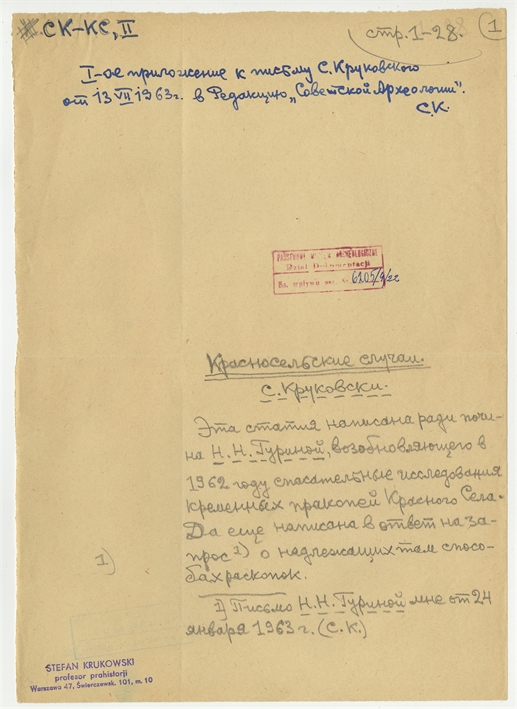 СК-КС, II
стр. 1-28.
1
I-ое приложение к письму С. Круковского
от 13 VII 1963г. в Редакцию „Советской Археологии".
С.К.
ARCHEOLOGICZNE
Dział Dokumentacji
6205/9/22
Красносельские случаи.
С. Круковски.
Эта статия написана ради почи-
на Н.Н. Гуриной, возобновляющего в
1962 году спасательные исследования
кременных пракопей Красного Села.
Да еще написана в ответ на за-
прос 1) о надлежащих там спосо-
бах раскопок.
1)
1) Письмо Н.Н. Гуриной мне от 24
января 1963 г. (С.К.)
STEFAN KRUKOWSKI
profesor prahistorji
Warszawa 47, Świerczewsk. 101, m. 10